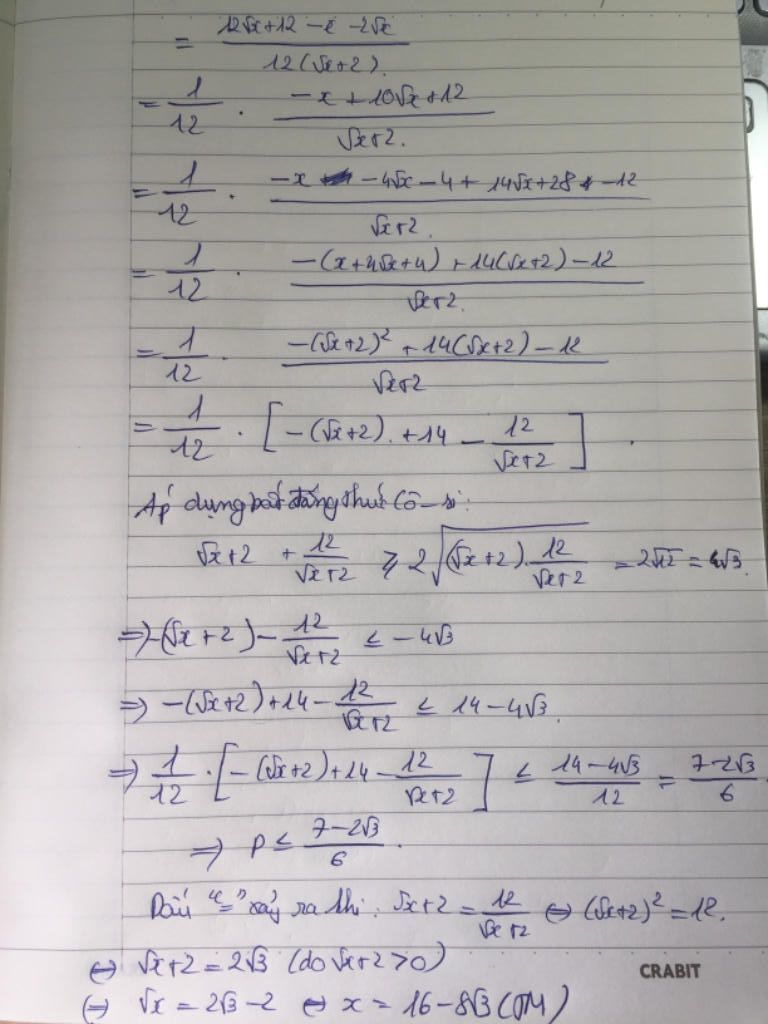 = (12√x+12 -x -2√x) / (12(√x+2))
= 1/12 . (-x+10√x+12) / (√x+2).
= 1/12 . (-x -4√x-4+14√x+28-12) / (√x+2).
= 1/12 . (-(x+4√x+4)+14(√x+2)-12) / (√x+2).
= 1/12 . (-(√x+2)²+14(√x+2)-12) / (√x+2)
= 1/12 . [-(√x+2)+14 - 12/(√x+2)].
Áp dụng bất đẳng thức Cô-si:
√x+2 + 12/(√x+2) ≥ 2√((√x+2).12/(√x+2)) = 2√12 = 4√3.
⇒ -(√x+2) - 12/(√x+2) ≤ -4√3
⇒ -(√x+2)+14 - 12/(√x+2) ≤ 14-4√3.
⇒ 1/12 . [-(√x+2)+14 - 12/(√x+2)] ≤ (14-4√3)/12 = (7-2√3)/6
⇒ P ≤ (7-2√3)/6.
Dấu "=" xảy ra khi: √x+2 = 12/(√x+2) ⇔ (√x+2)² = 12.
⇔ √x+2 = 2√3 (do √x+2>0)
CRABIT
⇔ √x = 2√3-2 ⇔ x = 16-8√3 (TM)